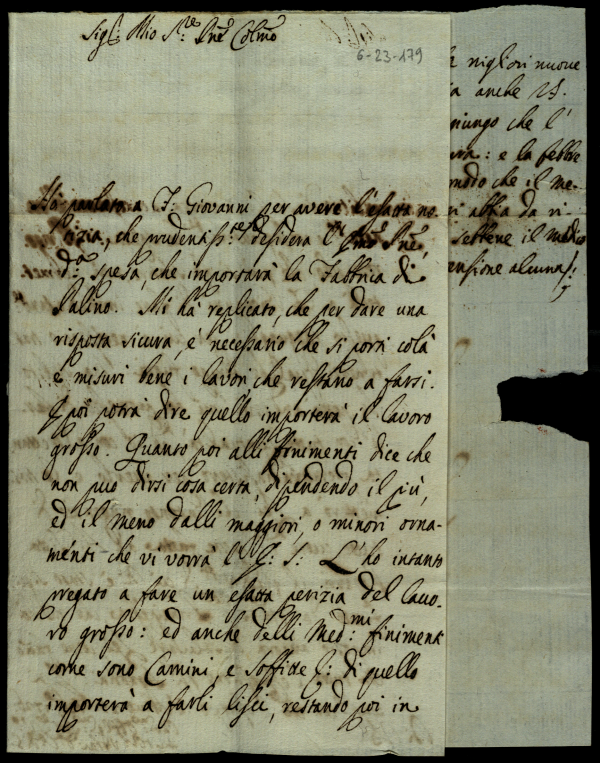 Sig.r Mio S.re Pne Colmo
6-23-179
Hò parlato a F: Giovanni per avere l'esatta no
tizia, che prudenziss.te desidera l' Pne,
d.a spesa, che importarà la Fabbrica di
Palino. Mi hà replicato, che per dare una
risposta sicura, é necessario che si porti colà
e misuri bene i lavori che restano a farsi.
E poi potrà dire quello importerà il lavoro
grosso. Quanto poi alli finimenti dice che
non può dirsi cosa certa, dipendendo il più,
ed il meno dalli maggiori, o minori orna-
menti che vi vorrà l' E: S: L'ho intanto
pregato a fare un esatta perizia del lavo-
ro grosso: ed anche delli Med:mi finimenti
come sono Camini, e soffitte &: di quello
importerà a farli lisci, restando poi in
migliori nuove
anche
giungo che l'
: e la febbre
modo che il me-
ri abbia da ri-
settene il medico
ensione alcuna/: